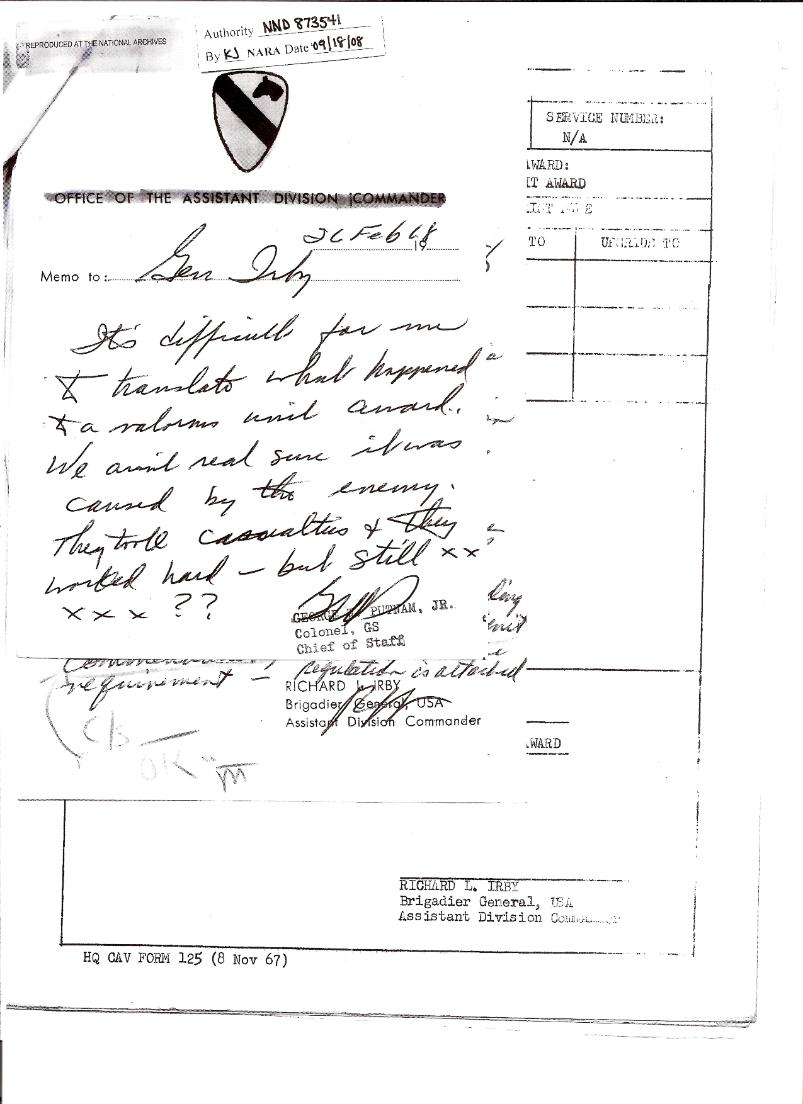 REPRODUCED AT THE NATIONAL ARCHIVES
Authority NND 873541
By KJ NARA Date 09/18/08
SERVICE NUMBER:
N/A
WARD:
T AWARD
TO
UPGRADE TO
OFFICE OF THE ASSISTANT DIVISION COMMANDER
26 Feb 68
19
Memo to: Gen Irby
It's difficult for me
to translate what happened
to a valorous unit award.
We ain't real sure it was
caused by the enemy.
They took casualties & they
worked hard – but still x x
x x x ??
GEORGE PUTNAM, JR.
Colonel, GS
Chief of Staff
requirement – regulation is attached
RICHARD L. IRBY
Brigadier General, USA
Assistant Division Commander
C/S
OK
WARD
RICHARD L. IRBY
Brigadier General, USA
Assistant Division Commander
HQ CAV FORM 125 (8 Nov 67)